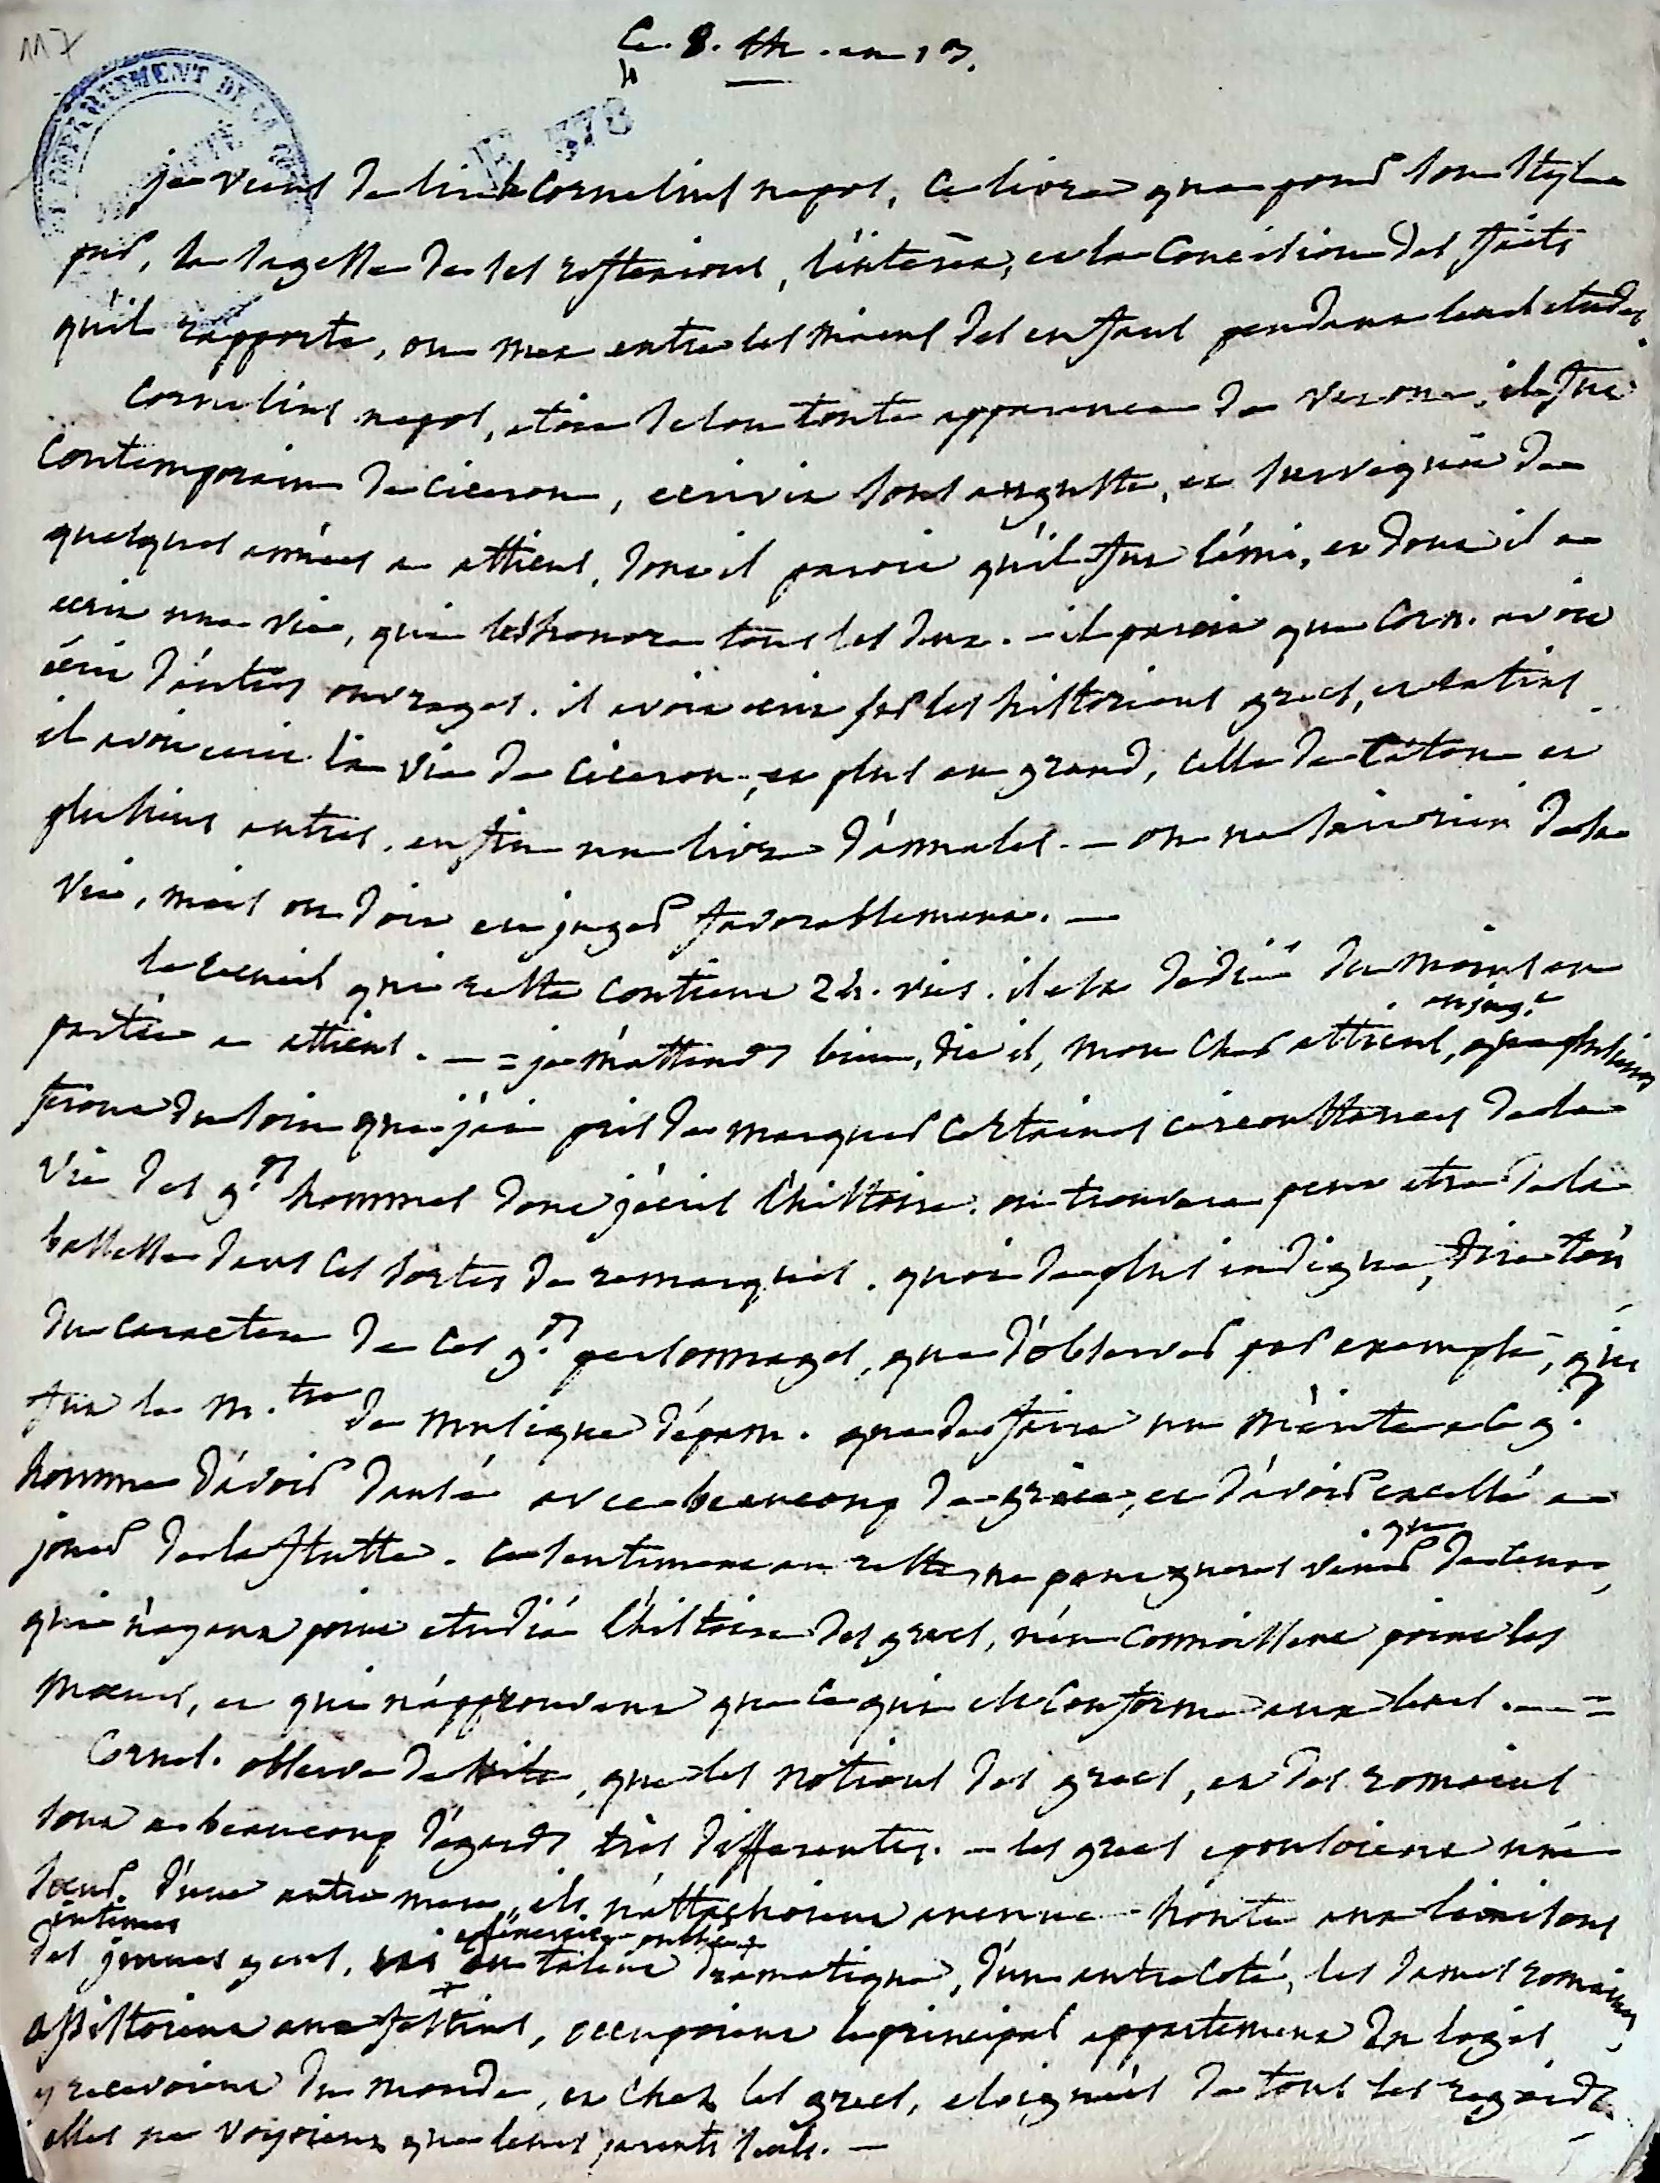 117
Ce 8. th. an 13.
DEPARTEMENT DE LA
E 378
je viens de lire le Cornelius nepos, ce livre que pour son style
pur, la sagesse de ses reflexions, l'intérêt, et la concision des faits
qu'il rapporte, on met entre les mains des enfans pendant leurs etudes.
Cornelius nepos, etoit selon toute apparence de verone, il fut
contemporain de ciceron, ecrivit sous auguste, et survequit de
quelques années a atticus, dont il paroit qu'il fut l'ami, et dont il a
ecrit une vie, qui les honore tous les deux. - il paroit que Corn. avoit
écrit d'autres ouvrages. il avoit ecrit sur les historiens grecs, et latins
il avoit ecrit la vie de ciceron, et plus en grand, celle de Caton et
plusieurs autres. enfin un livre d'annales. - on ne sait rien de sa
vie, mais on doit en juger favorablement. -
le recueil qui reste contient 24. vies. il est dedié du moins en
partie a atticus. - = je m'attends bien, dit il, mon cher atticus, que plusieurs
riront du soin que j'ai pris de marquer certaines circonstances de la
vie des g.ds hommes dont j'écris l'histoire. on trouvera peut etre de la
bassesse dans ces sortes de remarques. quoi de plus indigne, dira-t-on
du caractere de ces g.ds personnages, que d'observer par exemple, qui
fut le m.tre de musique d'épam. que de faire un mérite a ce g.d
homme d'avoir dansé avec beaucoup de grace, et d'avoir excellé a
jouer de la flutte. ce sentiment au reste, ne peut gueres venir que de ceux,
qui n'ayant point etudié l'histoire des grecs, n'en connoissent point les
moeurs, et qui n'approuvent que ce qui est conforme aux leurs. - =
Cornel. observe de suite, que les notions des grecs, et des romains
sont a beaucoup d'égards très differentes. - les grecs epousoient une
soeur d'une autre mere, ils n'attachoient aucune honte aux liaisons
intimes
des jeunes gens, au talent dramatique, d'un autre coté, les dames romaines
assistoient aux festins, occupoient le principal appartement du logis
y recevoient du monde, et chez les grecs, eloignées de tous les regards
elles ne voyoient que leurs parents seuls. -